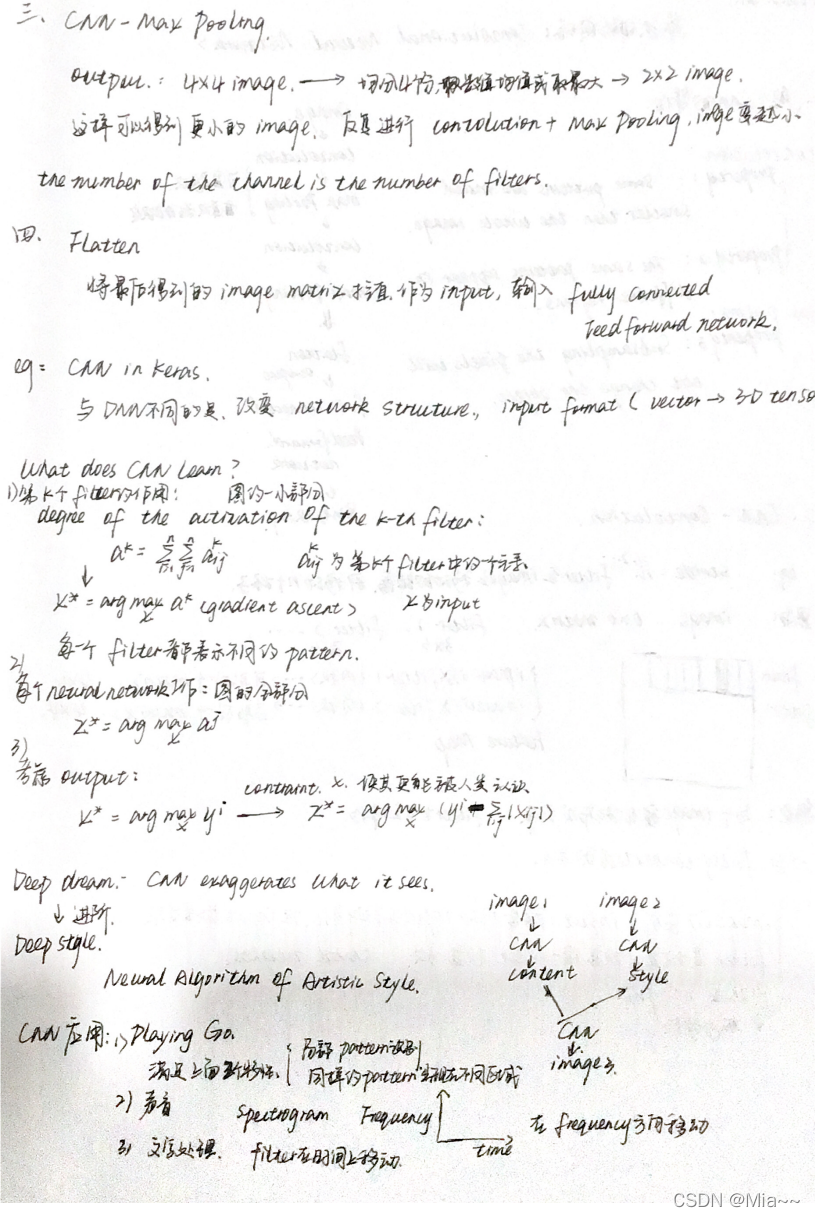 三、CNN - Max Pooling.
output: 4×4 image. → 均分4份, 取均值或取最大 → 2×2 image.
这样可以得到更小的image. 反复进行 convolution + Max Pooling, image变越小
the number of the channel is the number of filters.
四、Flatten
将最后得到的 image matrix 拉直, 作为input, 输入 fully connected
feedforward network.
eg: CNN in Keras.
与DNN不同的是, 改变 network structure, input format ( vector → 3-D tenso
What does CNN Learn?
1) 第k个filter的作用: 图的一小部分
degree of the activation of the k-th filter:
aᵏ = Σⁿᵢ₌₁ Σⁿⱼ₌₁ aᵏij aᵏij 为第k个filter中的一个元素
↓
X* = arg max_x aᵏ (gradient ascent) X为input
每一个 filter 都表示不同的 pattern.
2)
每个neural network工作: 图的全部分
X* = arg max_x aʲ
3)
考虑 output:
X* = arg max_x yⁱ → X* = arg max_x (yⁱ - Σᵢⱼ |Xij|)
contraint. X. 使其更能被人类认识
Deep dream: CNN exaggerates what it sees.
↓ 进阶.
Deep style.
Neural Algorithm of Artistic Style.
image1 image2
↓ ↓
CNN CNN
↓ ↓
content style
CNN
↓
image3.
CNN 应用: 1) Playing Go.
满足上面 特性 { 局部 pattern识别
同样的pattern 出现在不同区域
2) 声音 Spectrogram Frequency time 在 frequency方向移动
3) 文字处理. filter在时间上移动.
CSDN @Mia~~